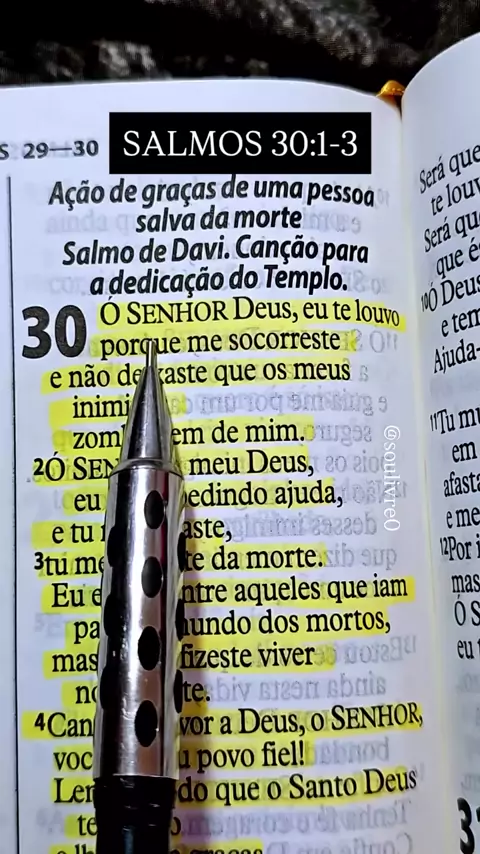 SALMOS 30:1-3
S 29—30
Ação de graças de uma pessoa
salva da morte
Salmo de Davi. Canção para
a dedicação do Templo.
30 Ó SENHOR Deus, eu te louvo
porque me socorreste
e não de xaste que os meus
inimi
zom em de mim.
2Ó SEN meu Deus,
eu edindo ajuda,
e tu aste,
3tu me te da morte.
Eu e ntre aqueles que iam
pa undo dos mortos,
mas fizeste viver
no te.
4Can vor a Deus, o SENHOR,
voc u povo fiel!
Len do que o Santo Deus
te o
@soulivre0
Será que
te louv
Será qu
que é
10Ó Deus
e tem
Ajuda-
11Tu mu
em
afasta
e me
12Por i
mas
Ó S
eu t